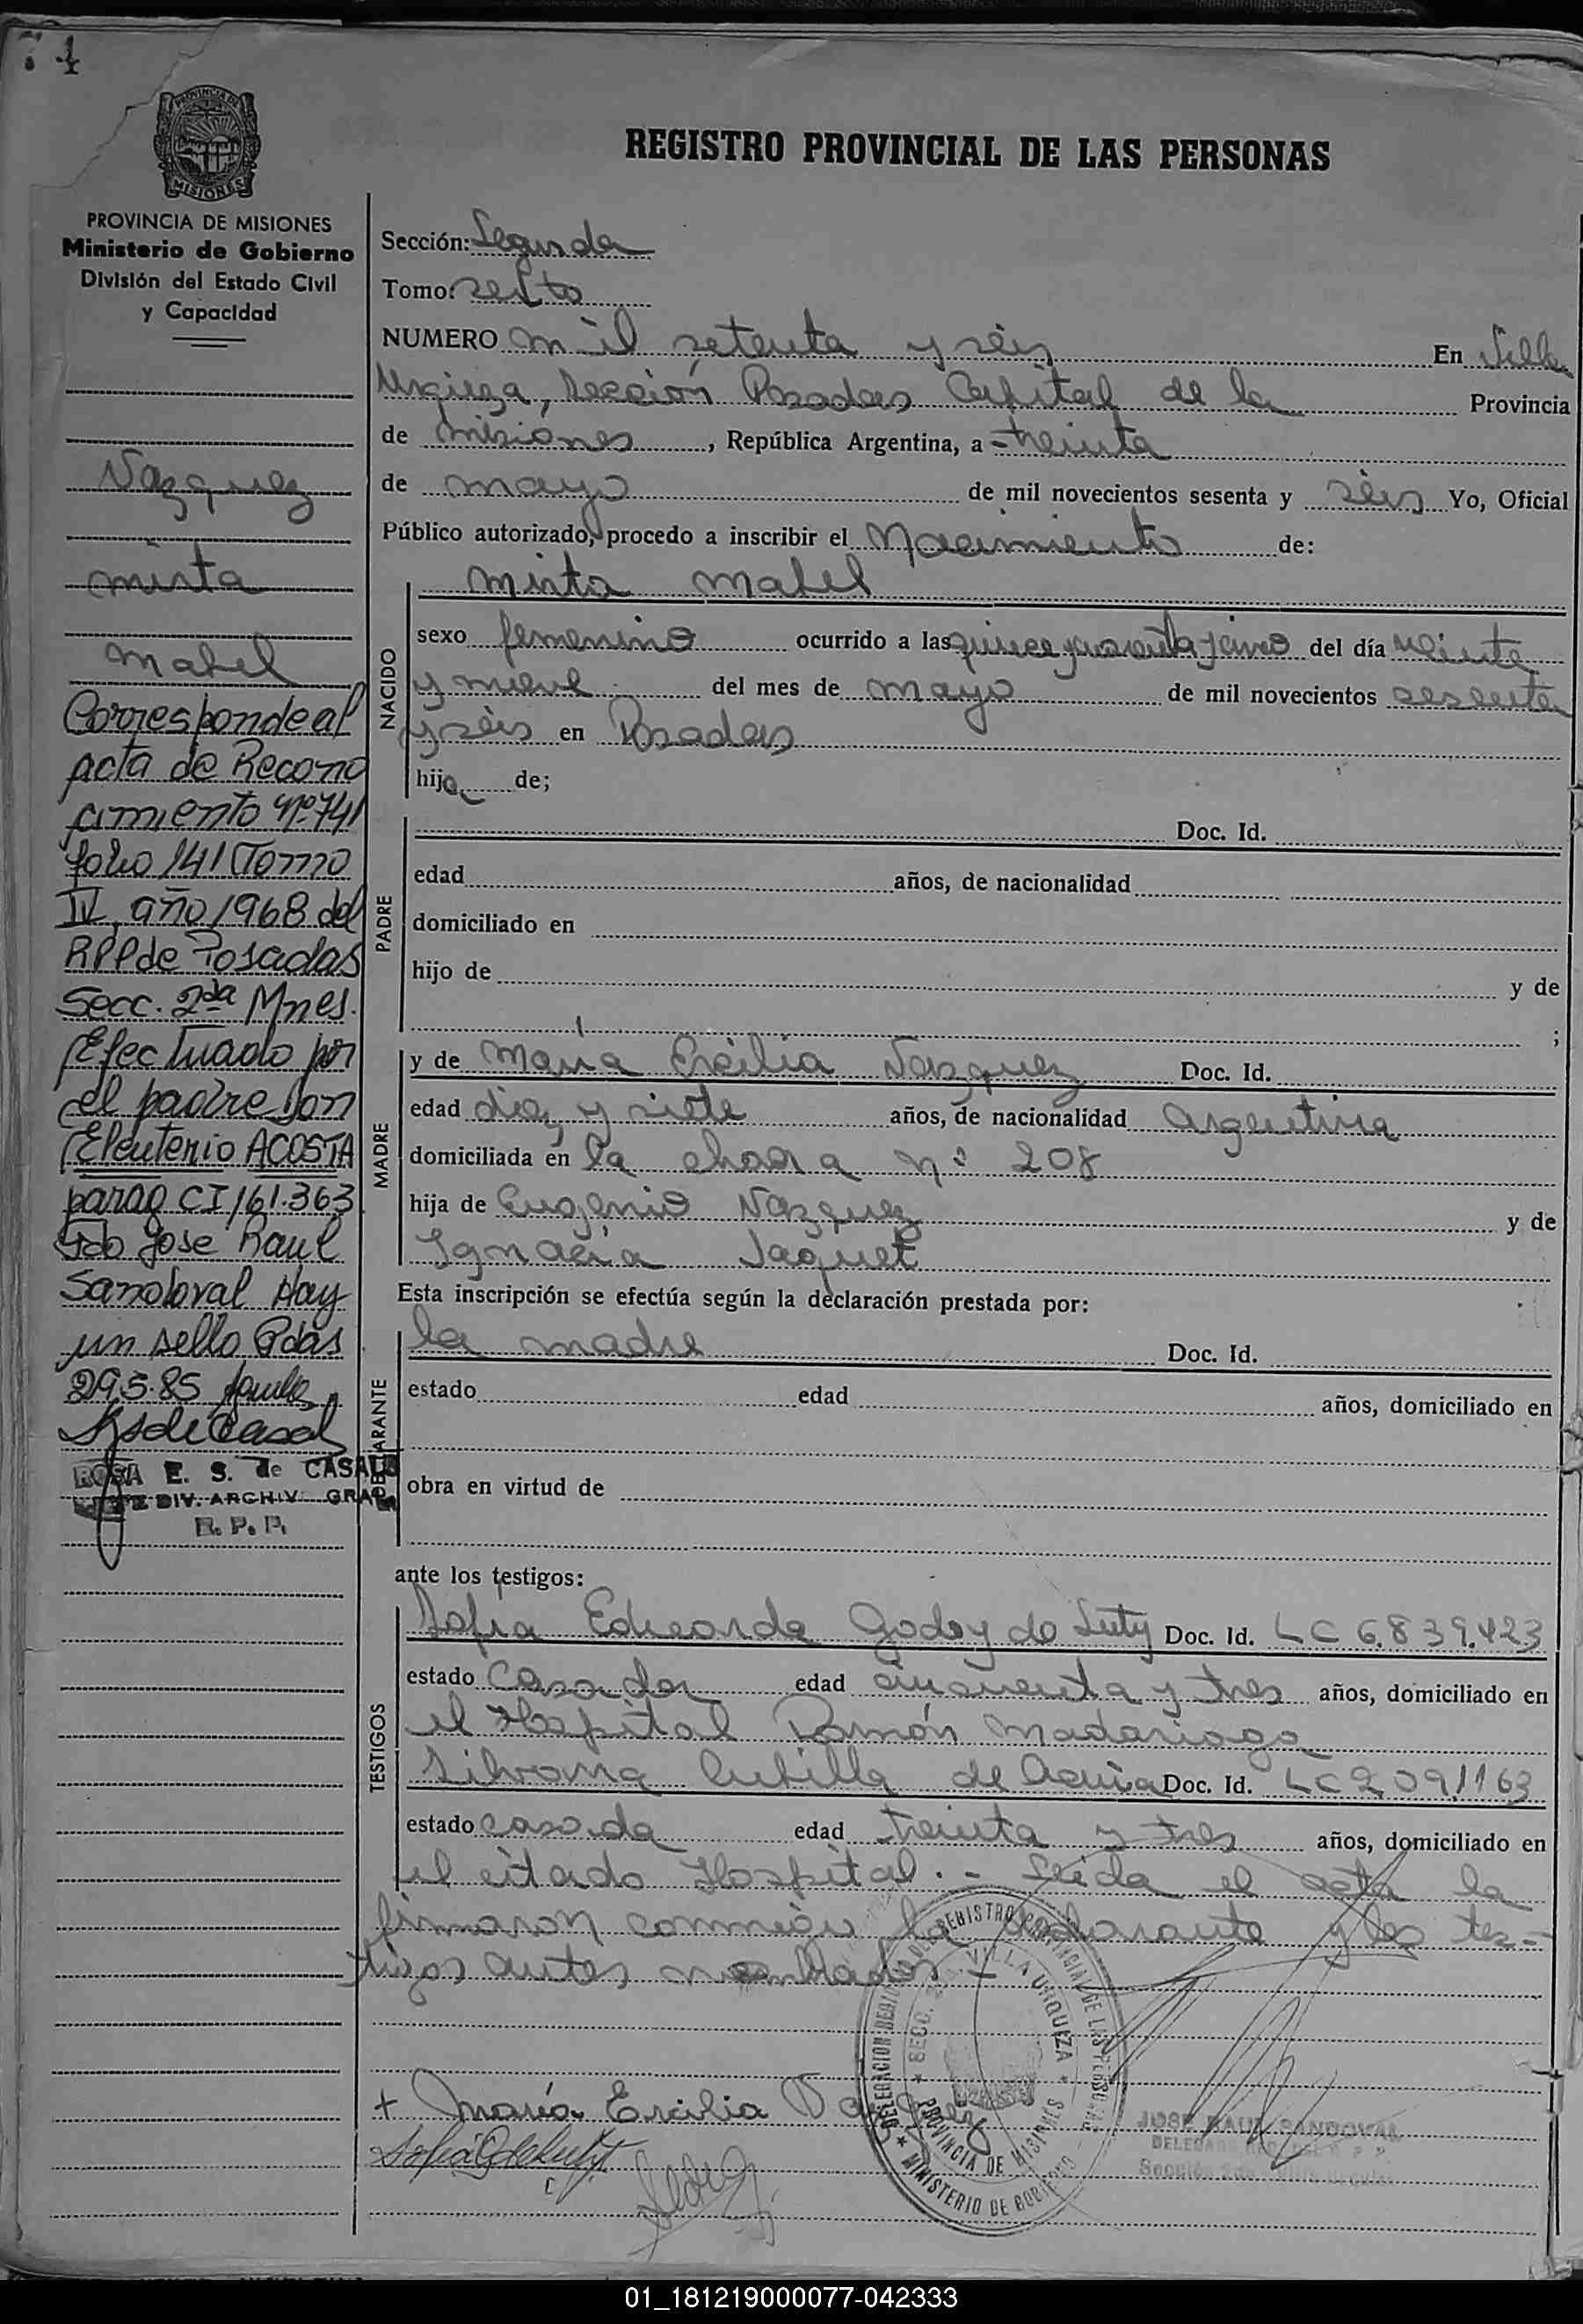 74
PROVINCIA DE
MISIONES
PROVINCIA DE MISIONES
Ministerio de Gobierno
División del Estado Civil
y Capacidad
Vazquez
mirta
mabel
Corresponde al
acta de Recono
cimiento nº 741
folio 141 Tomo
IV año 1968 del
RPP de Posadas
Secc. 2da Mnes.
Efectuado por
el padre Don
Eleuterio ACOSTA
parag CI 161.363
Fdo Jose Raul
Sandoval Hay
un sello Pdas
29.5.85
ROSA E. S. de CASALS
JEFE DIV. ARCHIV. GRAL
R. P. P.
REGISTRO PROVINCIAL DE LAS PERSONAS
Sección: Segunda
Tomo: sexto
NUMERO mil setenta y séis En Villa
Urquiza, Sección Posadas Capital de la Provincia
de misiones, República Argentina, a - treinta
de mayo de mil novecientos sesenta y séis Yo, Oficial
Público autorizado, procedo a inscribir el Nacimiento de:
NACIDO
mirta mabel
sexo femenino ocurrido a las quince y cuarenta y cinco del día veinte
y nueve del mes de mayo de mil novecientos sesenta
y séis en Posadas
hija de;
PADRE
Doc. Id.
edad años, de nacionalidad
domiciliado en
hijo de y de
;
MADRE
y de María Ercilia Vazquez Doc. Id.
edad diez y siete años, de nacionalidad argentina
domiciliada en la chacra nº 208
hija de Eugenio Vazquez y de
Ignacia Jaquet
Esta inscripción se efectúa según la declaración prestada por:
DECLARANTE
la madre Doc. Id.
estado edad años, domiciliado en
obra en virtud de
ante los testigos:
TESTIGOS
Sofía Eduarda Godoy de Doc. Id. LC 6.839.423
estado Casada edad cincuenta y tres años, domiciliado en
el Hospital Ramón Madariaga
Silvana Cubilla de Doc. Id. LC 2.091.163
estado casada edad treinta y tres años, domiciliado en
el citado Hospital. - Leída el acta la
firmaron conmigo la declarante y los tes-
tigos antes nombrados -
DELEGACION DEL REGISTRO PROVINCIAL DE LAS PERSONAS
SECC. 2da. VILLA URQUIZA
PROVINCIA DE MISIONES
MINISTERIO DE GOBIERNO
+ María Ercilia Vazquez
JOSE RAUL SANDOVAL
Sección 2da. Villa Urquiza
01_181219000077-042333